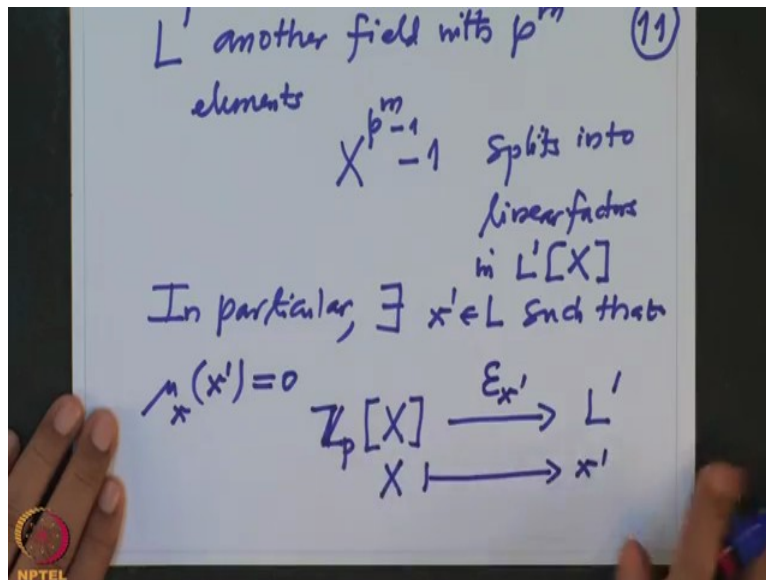 L' another field with p^m (11)
elements
X^{p^m-1} - 1 splits into
linear factors
in L'[X]
In particular, ∃ x' ∈ L such that
μ_x(x') = 0
ℤ_p[X] ⟶ L'
ε_{x'}
X ⟼ x'
NPTEL